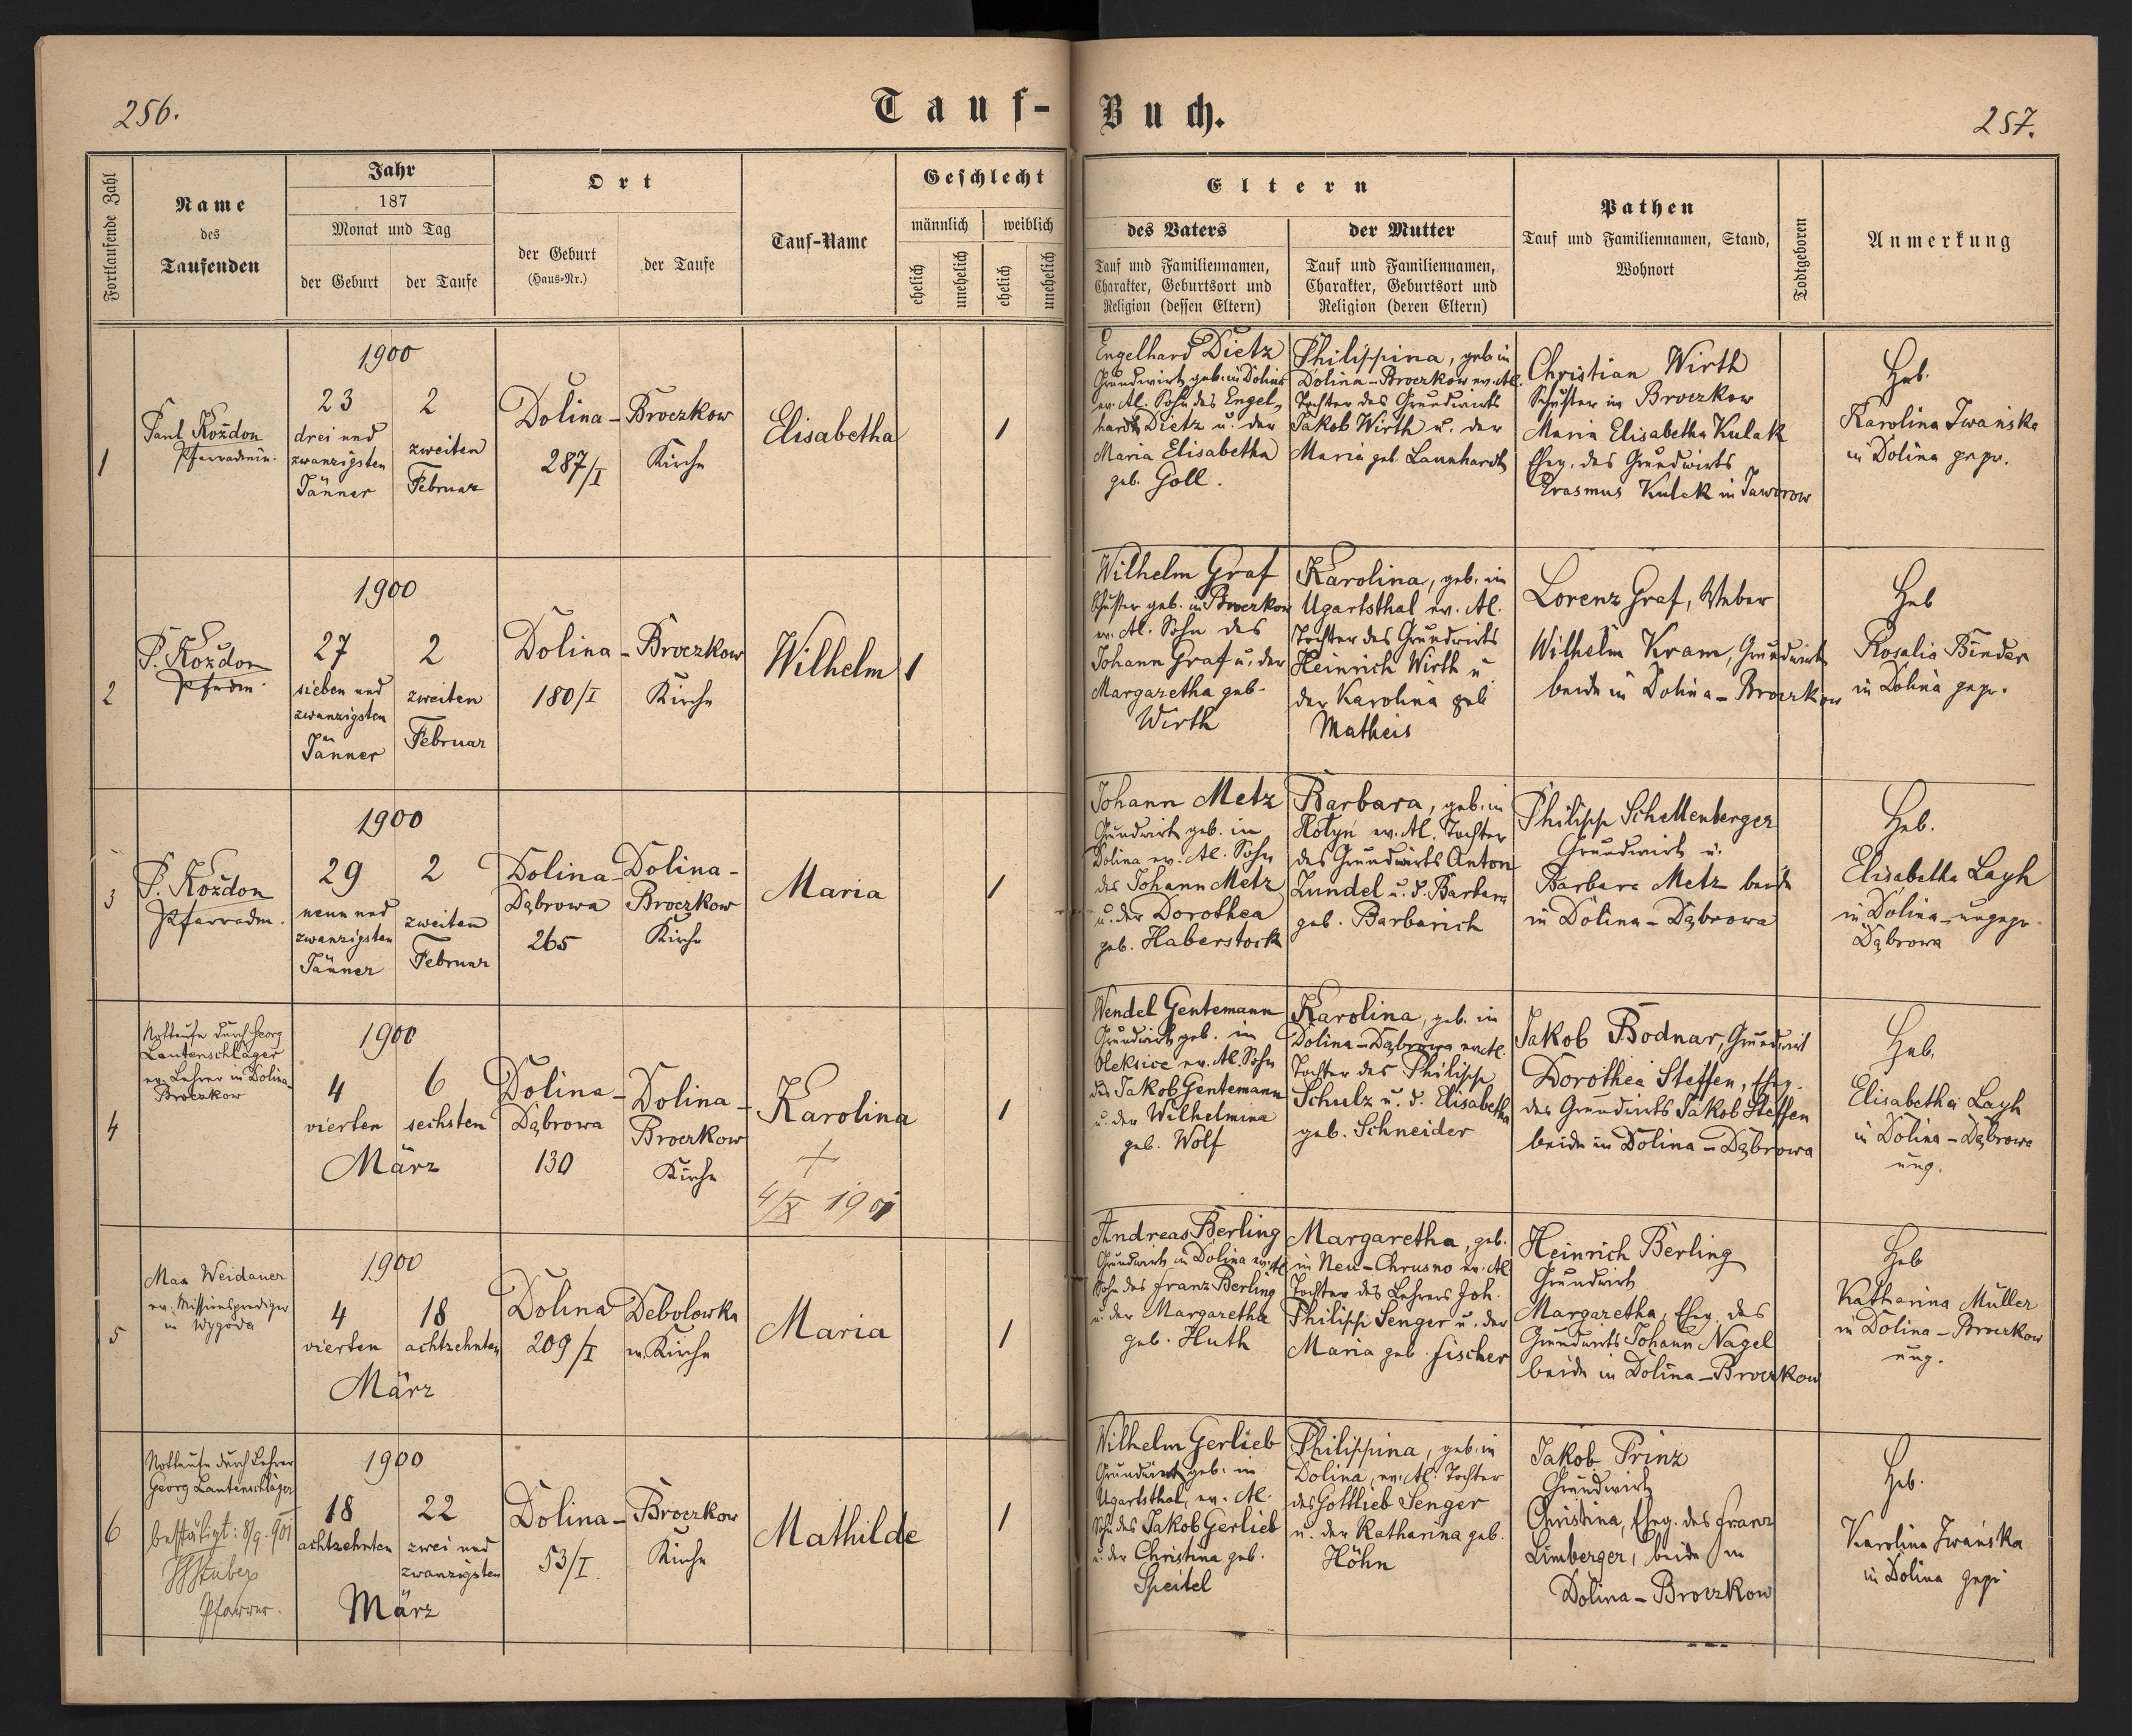 256.
Tauf-
Buch.
257.
Fortlaufende Zahl
Name
des
Taufenden
Jahr
187
Monat und Tag
der Geburt
der Taufe
Ort
der Geburt
(Haus-Nr.)
der Taufe
Tauf-Name
Geschlecht
männlich
weiblich
ehelich
unehelich
ehelich
unehelich
Eltern
des Vaters
Tauf und Familiennamen,
Charakter, Geburtsort und
Religion (dessen Eltern)
der Mutter
Tauf und Familiennamen,
Charakter, Geburtsort und
Religion (deren Eltern)
Pathen
Tauf und Familiennamen, Stand,
Wohnort
Todtgeboren
Anmerkung
1
Paul Koždon
Pfarradmin.
1900
23
drei und
zwanzigsten
Jänner
2
zweiten
Februar
Dolina - Broczkow
287/I
Kirche
Elisabetha
1
Engelhard Dietz
Grundwirt geb. in Dolina
ev. Al. Sohn des Engel-
hardt Dietz u. der
Maria Elisabetha
geb. Goll.
Philippina, geb in
Dolina - Broczkow ev. Al.
Tochter des Grundwirts
Jakob Wirth u. der
Maria geb. Launhardt
Christian Wirth
Schuster in Broczkow
Maria Elisabetha Kulak
Eheg. des Grundwirts
Erasmus Kulak in Jaworow
Heb.
Karolina Iwańska
in Dolina gepr.
2
P. Koždon
Pfadm.
1900
27
sieben und
zwanzigsten
Jänner
2
zweiten
Februar
Dolina - Broczkow
180/I
Kirche
Wilhelm
1
Wilhelm Graf
Schuster geb. in Broczkow
ev. Al. Sohn des
Johann Graf u. der
Margaretha geb.
Wirth
Karolina, geb. in
Ugartsthal ev. Al.
Tochter des Grundwirts
Heinrich Wirth u
der Karolina geb
Matheis
Lorenz Graf, Weber
Wilhelm Kram, Grundwirt
beide in Dolina - Broczkow
Heb
Rosalia Binder
in Dolina gepr.
3
P. Koždon
Pfarradm.
1900
29
neun und
zwanzigsten
Jänner
2
zweiten
Februar
Dolina -
Dąbrowa
265
Dolina -
Broczkow
Kirche
Maria
1
Johann Metz
Grundwirt geb. in
Dolina ev. Al. Sohn
des Johann Metz
u. der Dorothea
geb. Haberstock
Barbara, geb. in
Hołyń ev. Al. Tochter
des Grundwirts Anton
Zundel u. d. Barbara
geb. Barbarich
Philipp Schellenberger
Grundwirt u.
Barbara Metz beide
in Dolina - Dąbrowa
Heb.
Elisabetha Layh
in Dolina - ungepr.
Dąbrowa
4
Nottaufe durch Georg
Lautenschläger
ev. Lehrer in Dolina-
Broczkow
1900
4
vierten
6
sechsten
März
Dolina -
Dąbrowa
130
Dolina -
Broczkow
Kirche
Karolina
+
4/X 1901
1
Wendel Gentemann
Grundwirt geb. in
Oleksice ev. Al. Sohn
des Jakob Gentemann
u. der Wilhelmina
geb. Wolf
Karolina, geb. in
Dolina - Dąbrowa ev. Al.
Tochter des Philipp
Schulz u. d. Elisabetha
geb. Schneider
Jakob Bodnar, Grundwirt
Dorothea Steffen, Eheg.
des Grundwirts Jakob Steffen
beide in Dolina - Dąbrowa
Heb.
Elisabetha Layh
in Dolina - Dąbrowa
ung.
5
Max Weidauer
ev. Missionsprediger
in Wygoda
1900
4
vierten
18
achtzehnten
März
Dolina
209/I
Debolowka
Kirche
Maria
1
Andreas Berling
Grundwirt in Dolina ev. Al
Sohn des Franz Berling
u. der Margaretha
geb. Huth
Margaretha, geb.
in Neu-Chrusno ev. Al
Tochter des Lehrers Joh.
Philipp Senger u. der
Maria geb. Fischer
Heinrich Berling
Grundwirt
Margaretha, Eheg. des
Grundwirts Johann Nagel
beide in Dolina - Broczkow
Heb
Katharina Müller
in Dolina - Broczkow
ung.
6
Nottaufe durch Lehrer
Georg Lautenschläger
bestätigt: 8/9. 901
Pfarrer.
1900
18
achtzehnten
22
zwei und
zwanzigsten
März
Dolina - Broczkow
53/I.
Kirche
Mathilde
1
Wilhelm Gerlieb
Grundwirt geb. in
Ugartsthal, ev. Al.
Sohn des Jakob Gerlieb
u. der Christina geb.
Speitel
Philippina, geb. in
Dolina, ev. Al. Tochter
des Gottlieb Senger
u. der Katharina geb.
Höhn
Jakob Prinz
Grundwirt
Christina, Eheg. des Franz
Limberger, beide in
Dolina - Broczkow
Heb.
Karolina Iwańska
in Dolina gepr